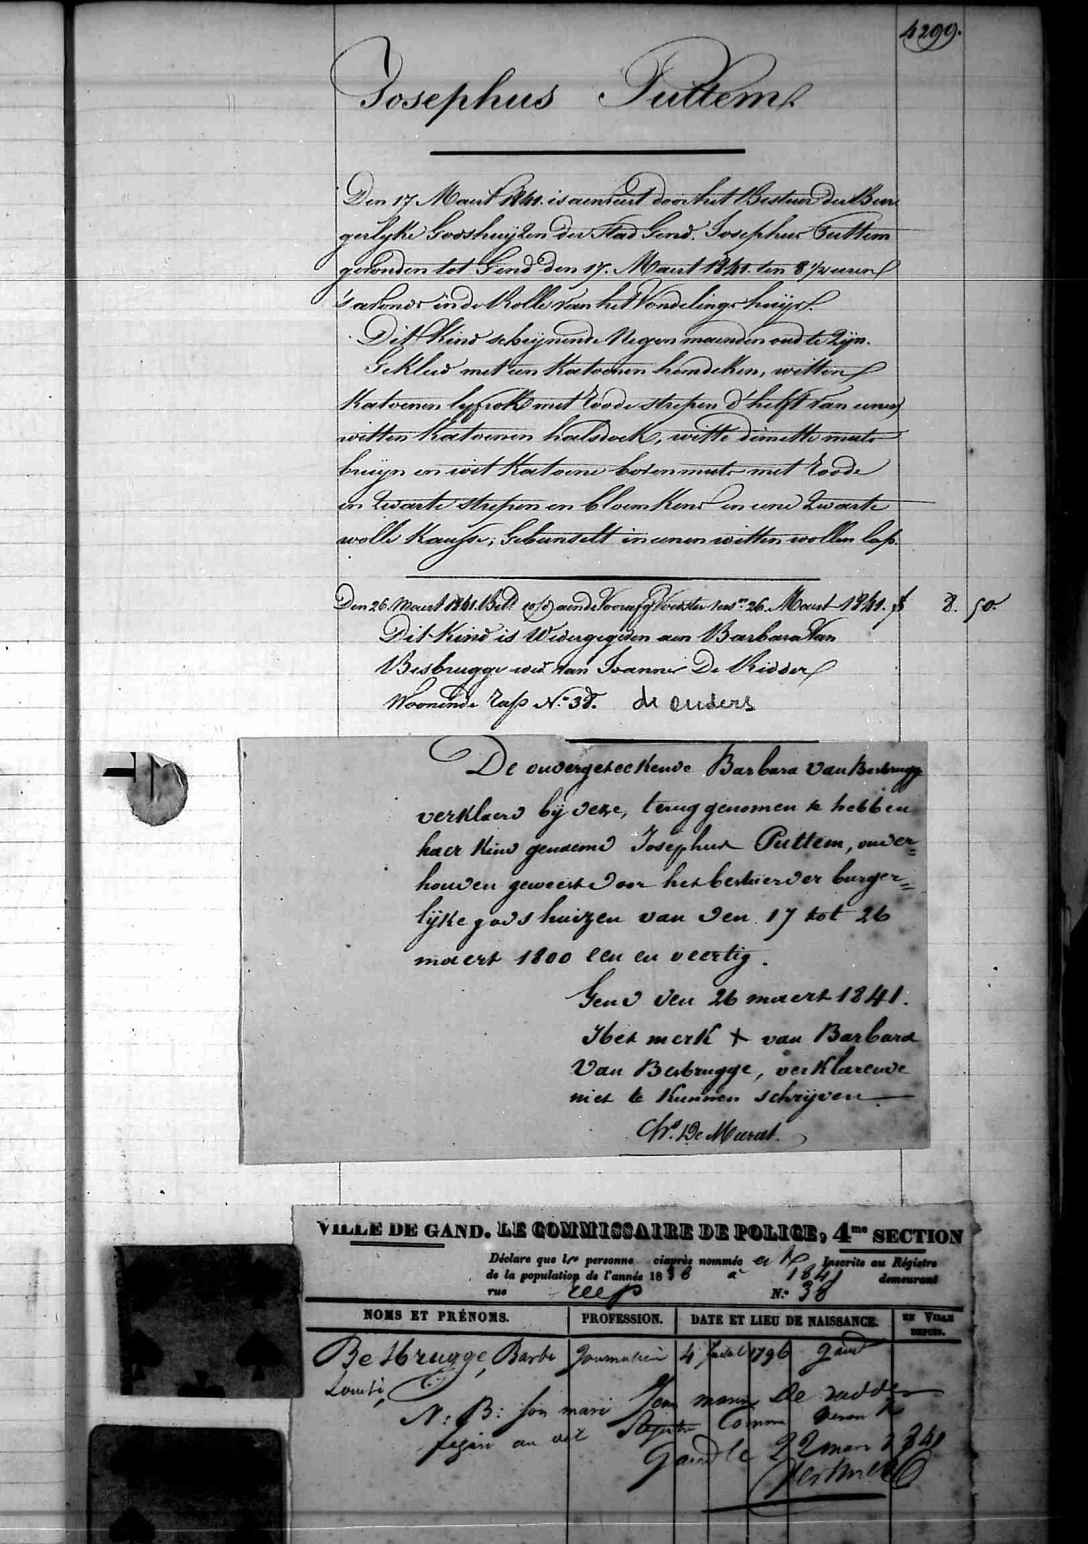 4299.
Josephus Puttem
Den 17 Maert 1841. is aenveert door het Bestuer der Bur
gerlyke Godshuyzen der Stad Gend. Josephus Puttem
gevonden tot Gend den 17. Maert 1841. ten 8 1/2 uren
's avonds in de Rolle van het Vondelings huys.
Dit Kind schynende Negen maenden oud te Zyn.
Gekleed met een Katoenen hemdeken, witten
Katoenen lyfrok met roode strepen d'helft van eenen
witten Katoenen halsdoek, witte dimette muts
bruyn en wit Katoene bovenmuts met roode
en Zwarte strepen en bloemkens en eene Zwarte
wolle Kousse, Gebunselt in eenen witten wollen lap.
Den 26 Maert 1841. Bet. aen de Voorsz Voedster 26. Maert 1841. f 8. 50.
Dit Kind is Wedergegeven aen Barbara Van
Besbrugge wed. van Joannes De Ridder
Woonende N.º 38. de ouders
De ondergeteekende Barbara Van Besbrugge
verklaerd by deze, terug genomen te hebben
haer Kind genaemd Josephus Puttem, onder=
houden geweest door het bestuer der burger=
lyke gods huizen van den 17 tot 26
maert 1800 een en veertig.
Gend den 26 maert 1841.
Het merk + van Barbara
Van Besbrugge, verklarende
niet te kunnen schryven
VILLE DE GAND. LE COMMISSAIRE DE POLICE, 4me SECTION
Déclare que les personne ciaprès nommée Inscrite au Régistre
de la population de l'année 18 à 1841 demeurant
rue N.º 38
NOMS ET PRÉNOMS. PROFESSION. DATE ET LIEU DE NAISSANCE. EN VILLE DEPUIS.
Besbrugge, Barbe Journalière 4 1796 Gand
N: B: son mari Jean De
Gand le 22 mars 1841